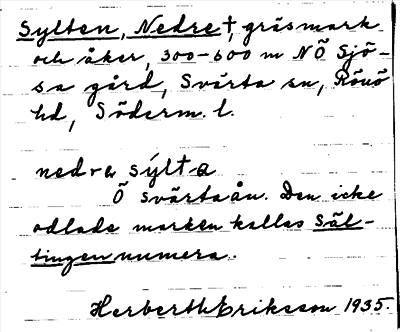 Sylten, Nedre †, gräsmark
och åker, 300-600 m NÖ Sjö-
sa gård, Svärta sn, Rönö
hd, Söderm. l.
nedra sylta
Ö Svärtaån. Den icke
odlade marken kallas Säl-
tingen numera.
Herberth Eriksson 1935.